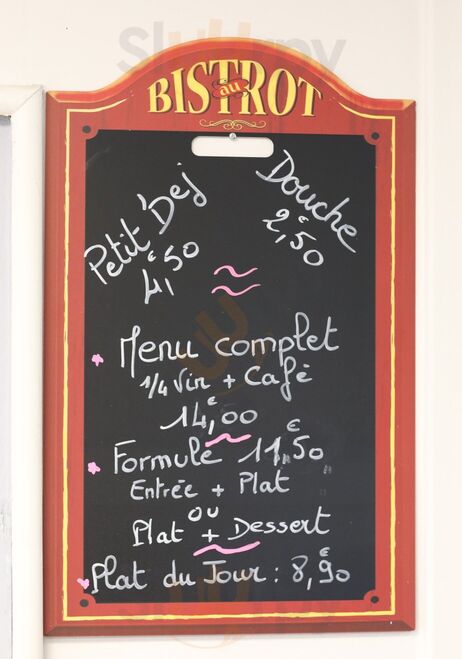 Sluurpy
BISTROT
au
Petit Dej
4,€50
Douche
2,€50
Menu complet
1/4 Vin + Café
14,€00
Formule 11,€50
Entrée + Plat
ou
Plat + Dessert
Plat du Jour : 8,€90